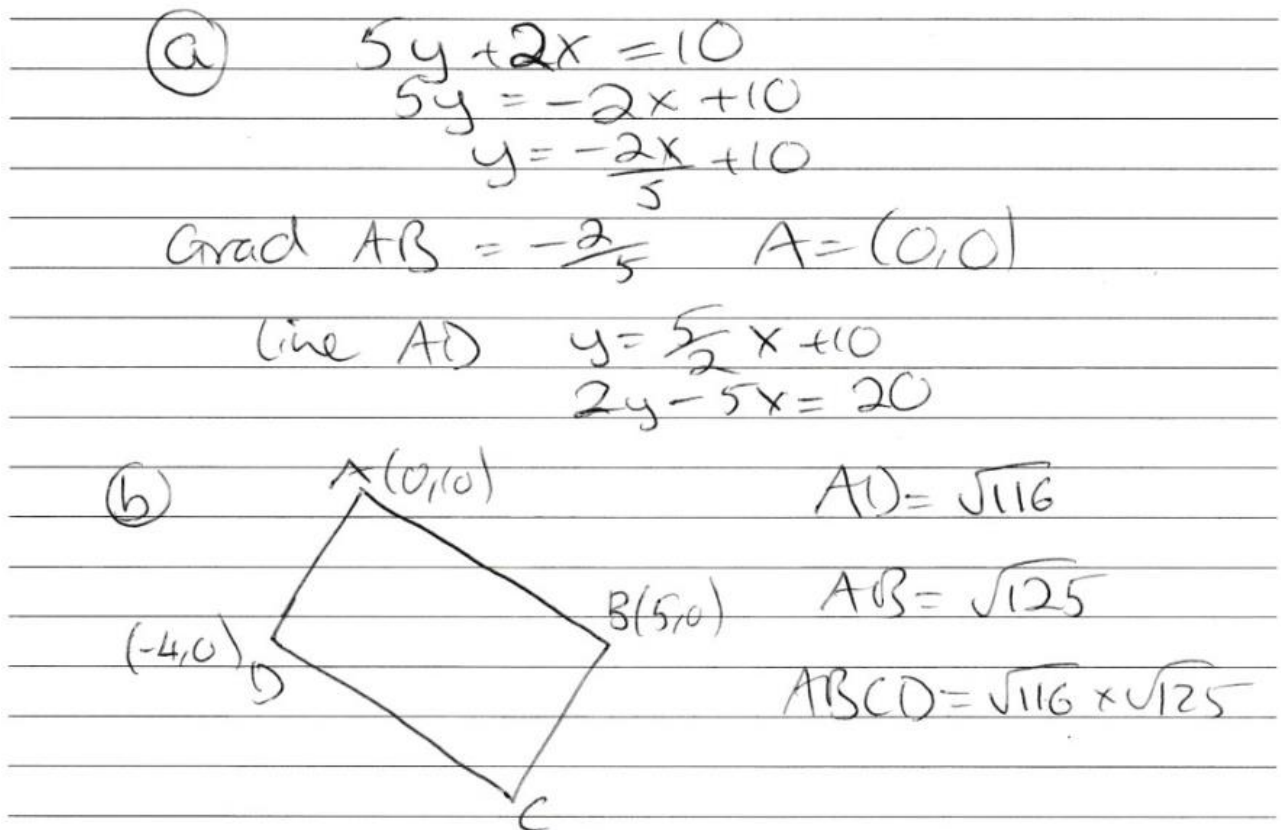 (a) 5y + 2x = 10
5y = -2x + 10
y = -2x/5 + 10
Grad AB = -2/5 A = (0,0)
line AD y = 5/2 x + 10
2y - 5x = 20
(b) A(0,10) AD = √116
B(5,0) AB = √125
(-4,0) D
ABCD = √116 × √125
C